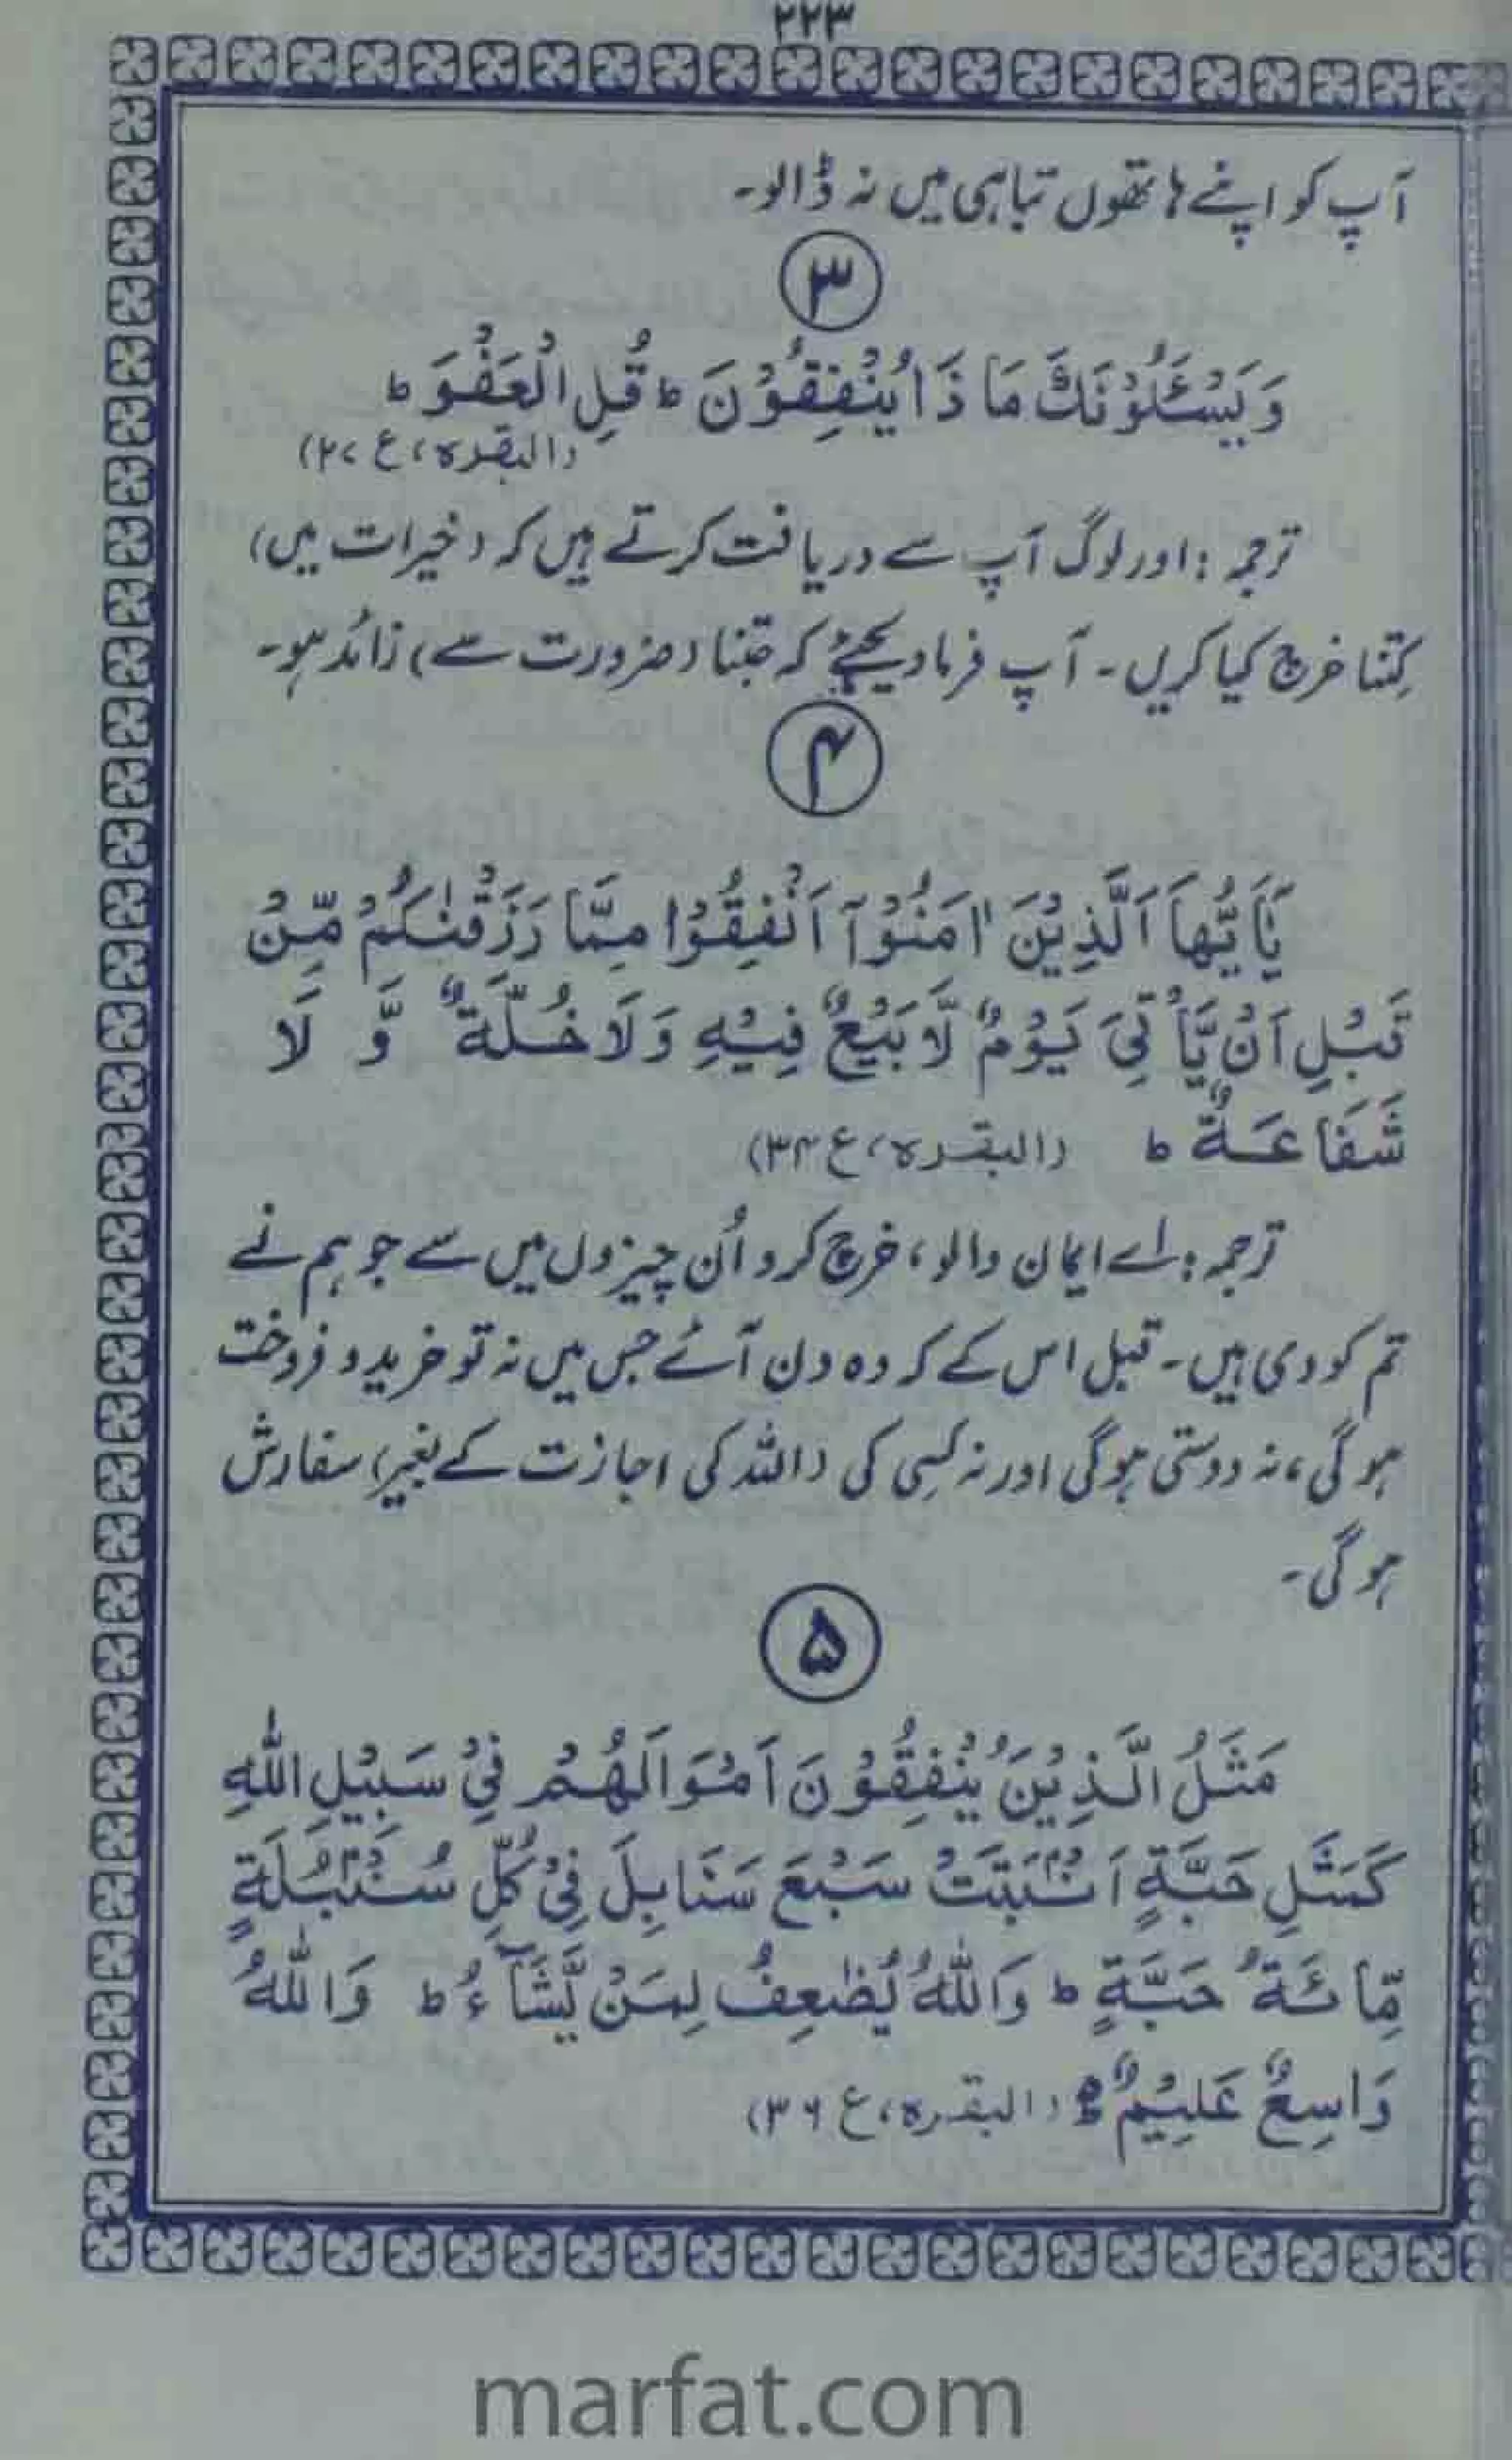 ۲۲۳
آپ کو اپنے ہاتھوں تباہی میں نہ ڈالو۔
۳
وَيَسْـَٔلُوْنَكَ مَا ذَا يُنْفِقُوْنَ ط قُلِ الْعَفْوَ ط
(البقرہ، ع ۲۷)
ترجمہ: اور لوگ آپ سے دریافت کرتے ہیں کہ (خیرات میں)
کِتنا خرچ کیا کریں۔ آپ فرما دیجئے کہ جتنا (ضرورت سے) زائد ہو۔
۴
يٰٓاَيُّهَا الَّذِيْنَ اٰمَنُوْٓا اَنْفِقُوْا مِمَّا رَزَقْنٰكُمْ مِّنْ
قَبْلِ اَنْ يَّاْتِىَ يَوْمٌ لَّا بَيْعٌ فِيْهِ وَلَا خُلَّةٌ وَّ لَا
شَفَاعَةٌ ط (البقرہ، ع ۳۴)
ترجمہ: اے ایمان والو، خرچ کرو اُن چیزوں میں سے جو ہم نے
تم کو دی ہیں۔ قبل اس کے کہ وہ دن آئے جس میں نہ تو خرید و فروخت
ہوگی، نہ دوستی ہوگی اور نہ کسِی کی (اللہ کی اجازت کے بغیر) سفارش
ہوگی۔
۵
مَثَلُ الَّذِيْنَ يُنْفِقُوْنَ اَمْوَالَهُمْ فِىْ سَبِيْلِ اللّٰهِ
كَمَثَلِ حَبَّةٍ اَنْۢبَتَتْ سَبْعَ سَنَابِلَ فِىْ كُلِّ سُنْۢبُلَةٍ
مِّائَةُ حَبَّةٍ ط وَاللّٰهُ يُضٰعِفُ لِمَنْ يَّشَآءُ ط وَاللّٰهُ
وَاسِعٌ عَلِيْمٌ (البقرہ، ع ۳۶)
marfat.com